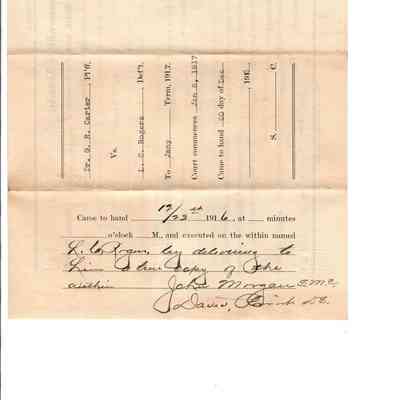 Dr. G. R. Carter, Pl'ff.
Vs.
L. C. Rogers Def't.
To Jany Term, 1917.
Court commences Jan 8, 1917
Came to hand 20 day of Dec
191
S. C.
Came to hand 12/23 1916, at minutes
o'clock M., and executed on the within named
L. C. Rogers, by delivering to
him a true copy of the
within John Morgan